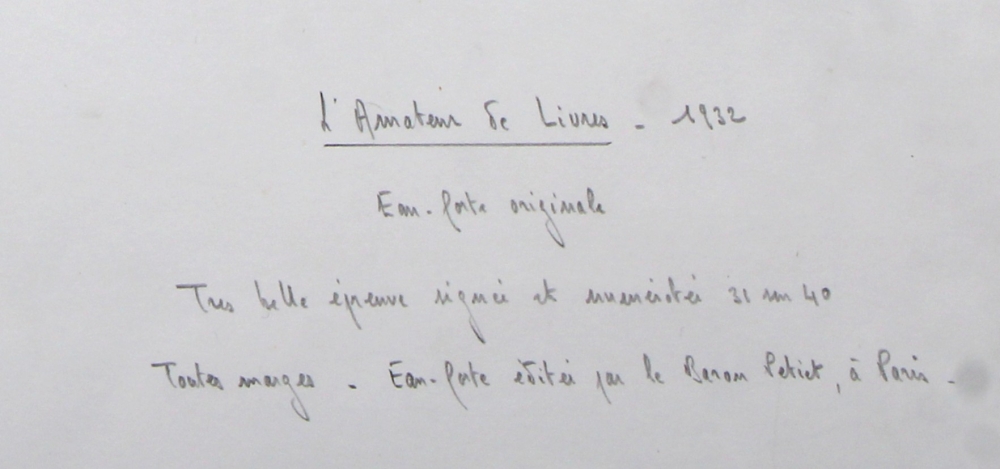 L'Amateur de Livres - 1932
Eau-forte originale
Tres belle épreuve signée et numérotée 31 sur 40
Toutes marges - Eau-forte éditée par le Baron Petiet, à Paris -